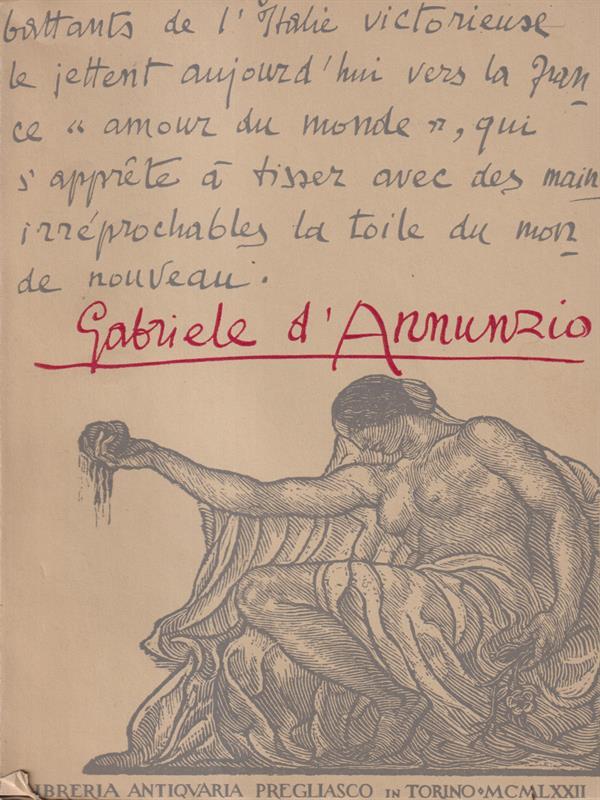 battants de l'Italie victorieuse
le jettent aujourd'hui vers la Fran
ce “amour du monde”, qui
s'apprête à tisser avec des main
irréprochables la toile du mon
de nouveau.
Gabriele d'Annunzio
IBRERIA ANTIQVARIA PREGLIASCO IN TORINO • MCMLXXII